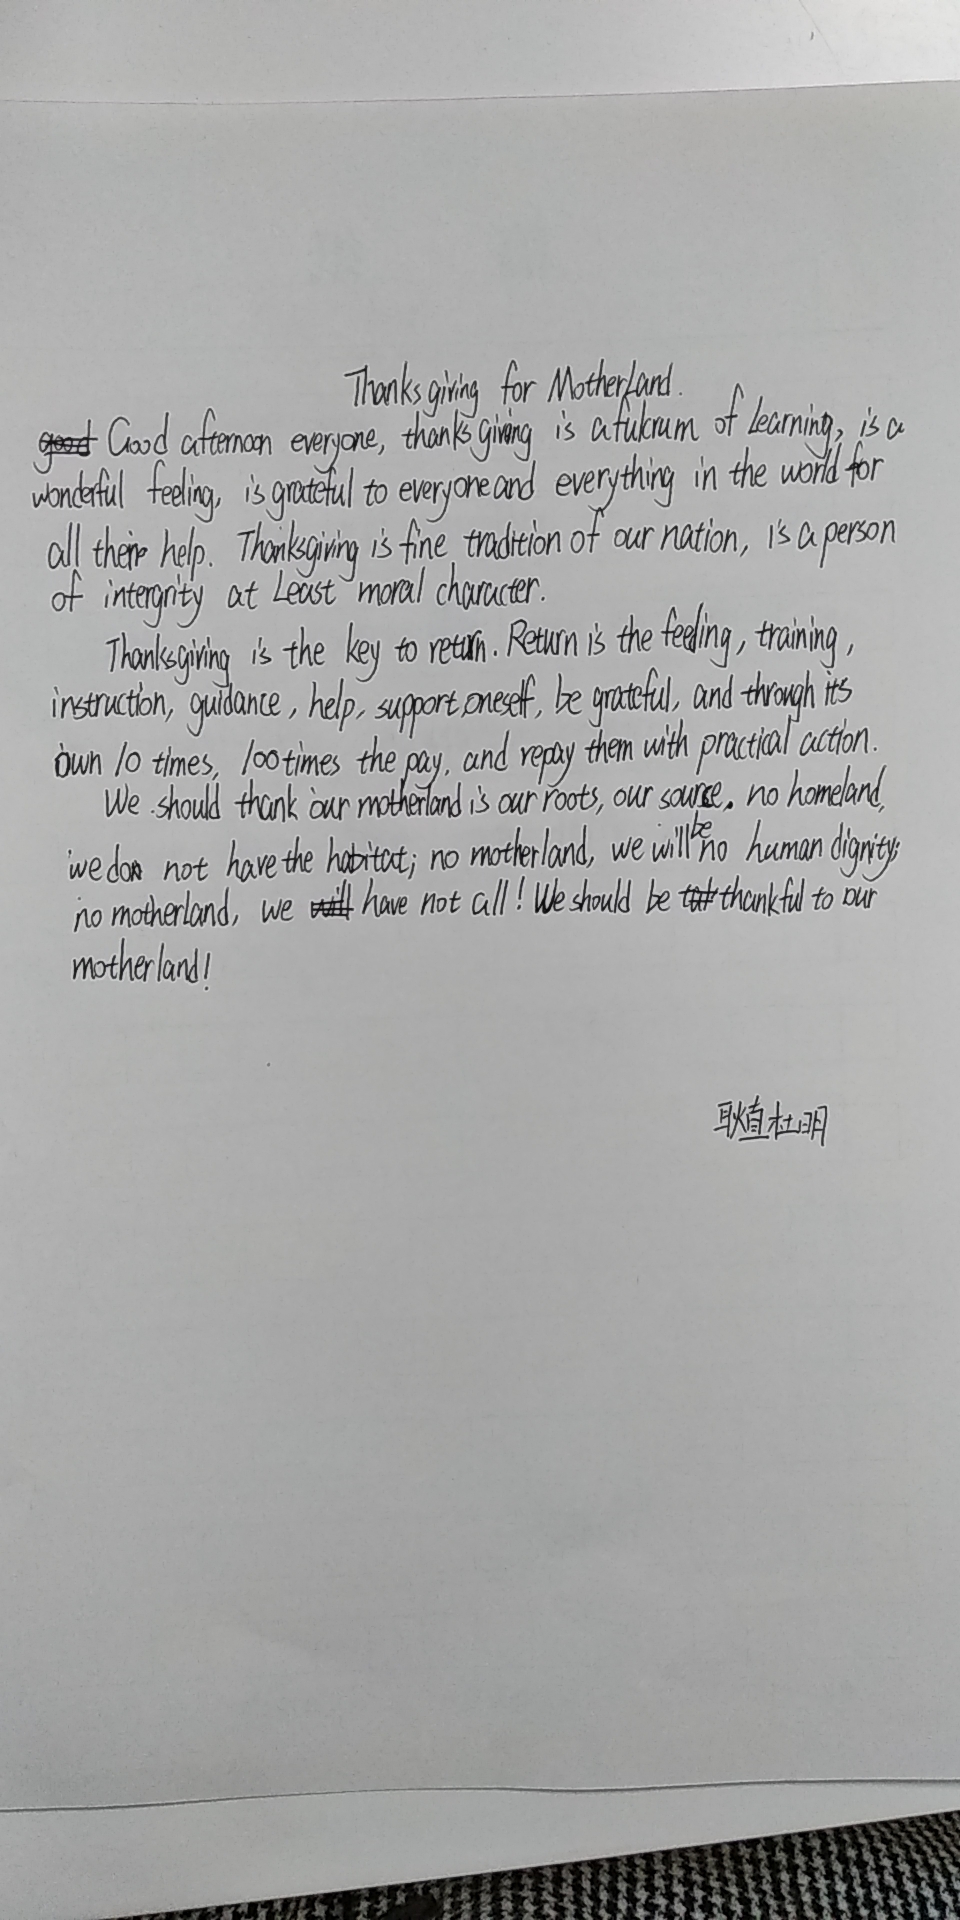 Thanksgiving for MotherLand.
good Good afternoon everyone, thanksgiving is a fulcrum of Learning, is a
wonderful feeling, is grateful to everyone and everything in the world for
all their help. Thanksgiving is fine tradition of our nation, is a person
of intergrity at Least moral character.
Thanksgiving is the key to return. Return is the feeling, training,
instruction, guidance, help, support oneself, be grateful, and through its
own 10 times, 100 times the pay, and repay them with practical action.
We should thank our motherland is our roots, our source, no homeland,
we do not have the habitat; no motherland, we will be no human dignity;
no motherland, we will have not all! We should be thankful to our
motherland!
耿直杜明